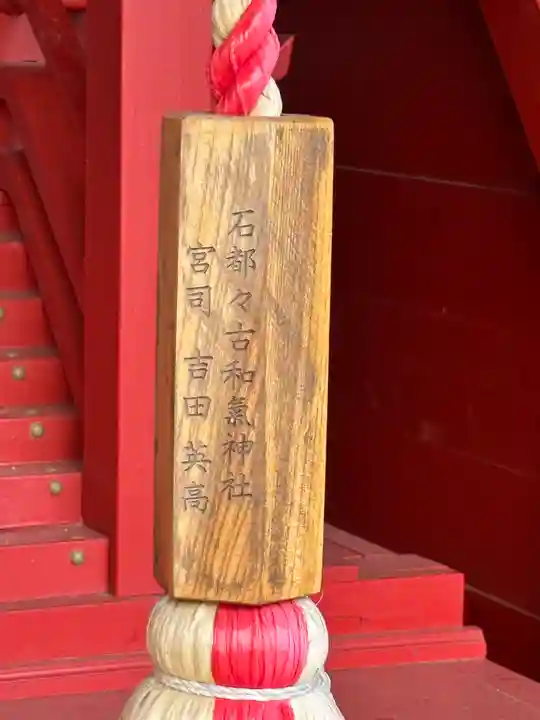 石都々古和氣神社
宮司 吉田 英高